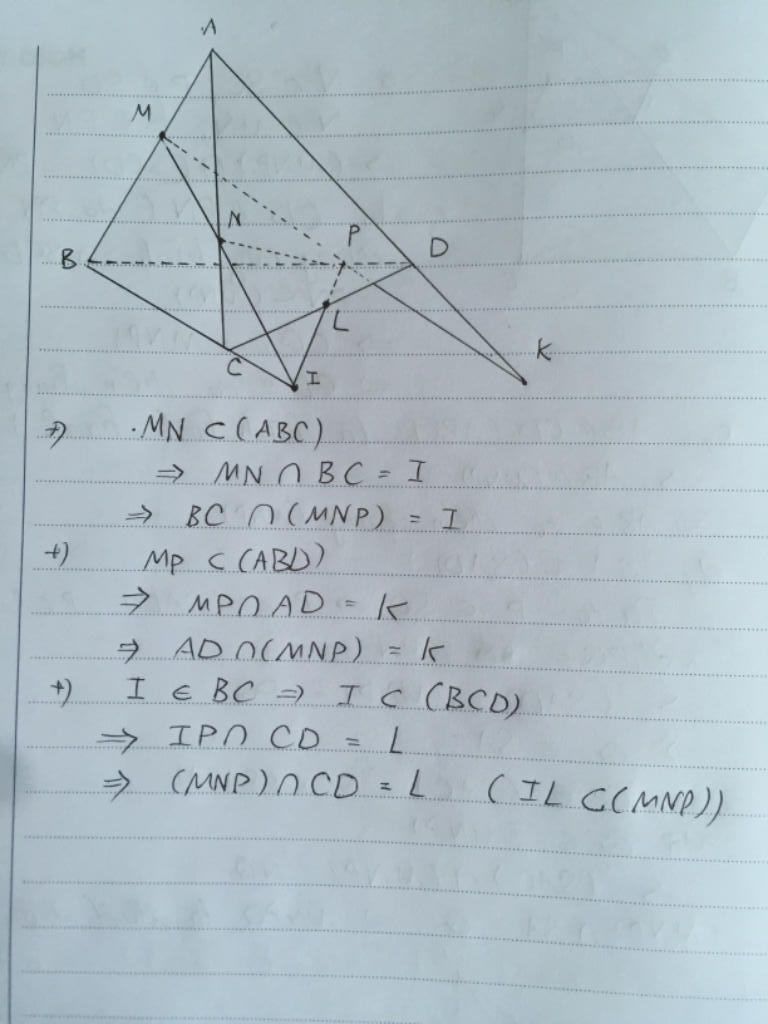 A
M
N
P
D
B
L
K
C
I
+) .MN ⊂ (ABC)
⇒ MN ∩ BC = I
⇒ BC ∩ (MNP) = I
+) MP ⊂ (ABD)
⇒ MP ∩ AD = K
⇒ AD ∩ (MNP) = K
+) I ∈ BC ⇒ I ⊂ (BCD)
⇒ IP ∩ CD = L
⇒ (MNP) ∩ CD = L ( IL ⊂ (MNP))